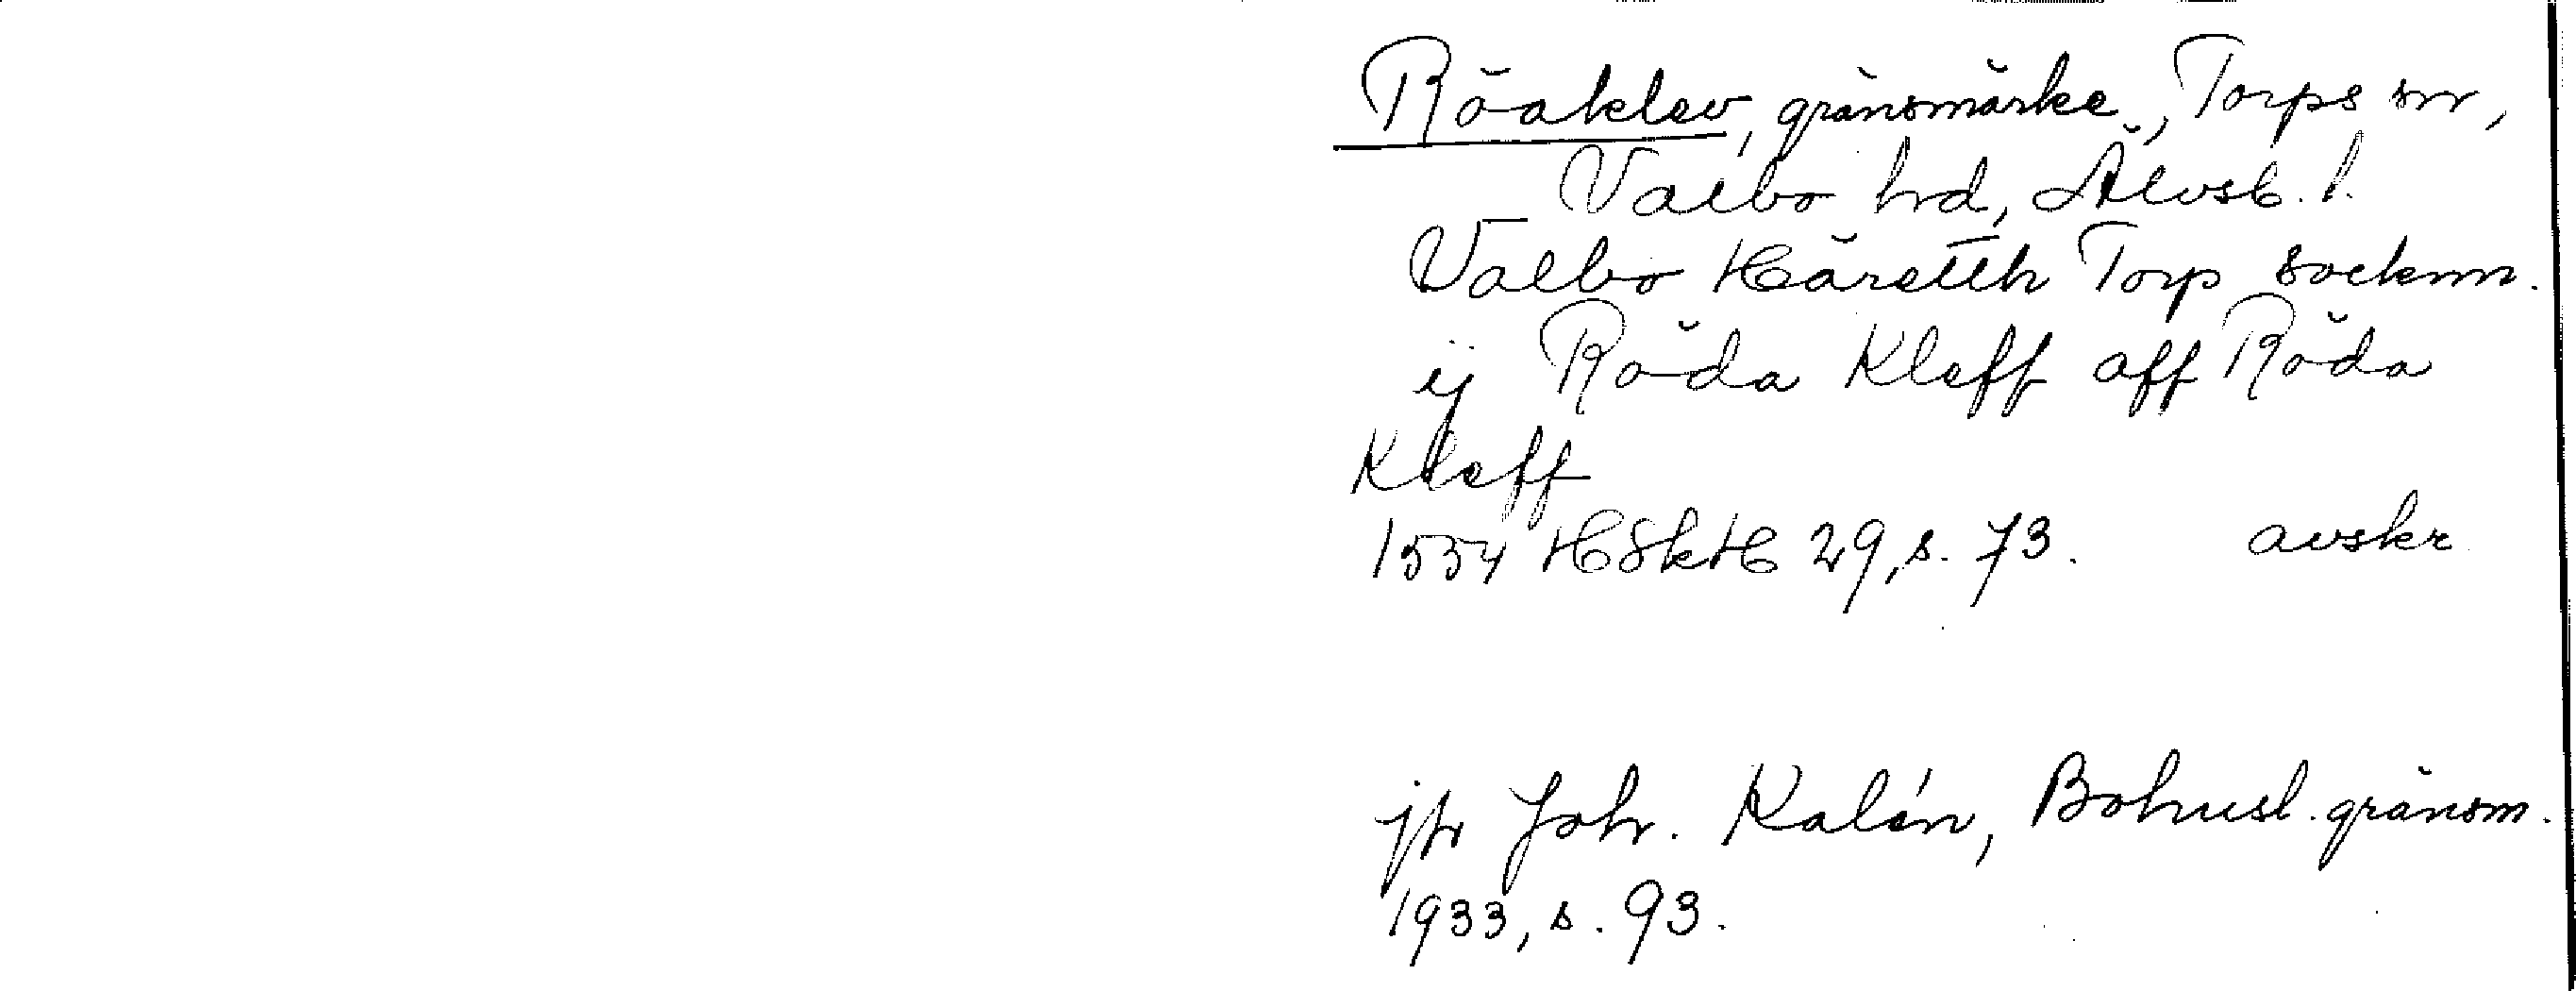 Röaklev, gränsmärke, Torps sn,
Valbo hd, Älvsb. l.
Valbo Häretth Torp socknn.
ij Röda Kleff aff Röda
Kleff
1554 HSkH 29, s. 73. avskr
jfr Joh. Kalén, Bohusl. gränsm.
1933, s. 93.